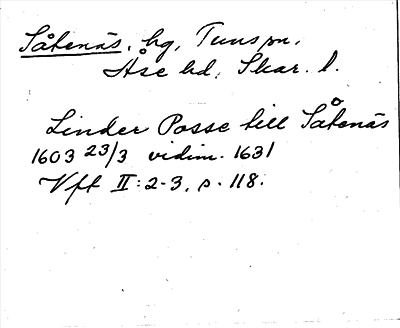 Såtenäs, hg, Tuns sn.
Åse hd, Skar. l.
Linder Posse till Såtenäs
1603 23/3 vidim. 1631
Vft II: 2-3, s. 118.